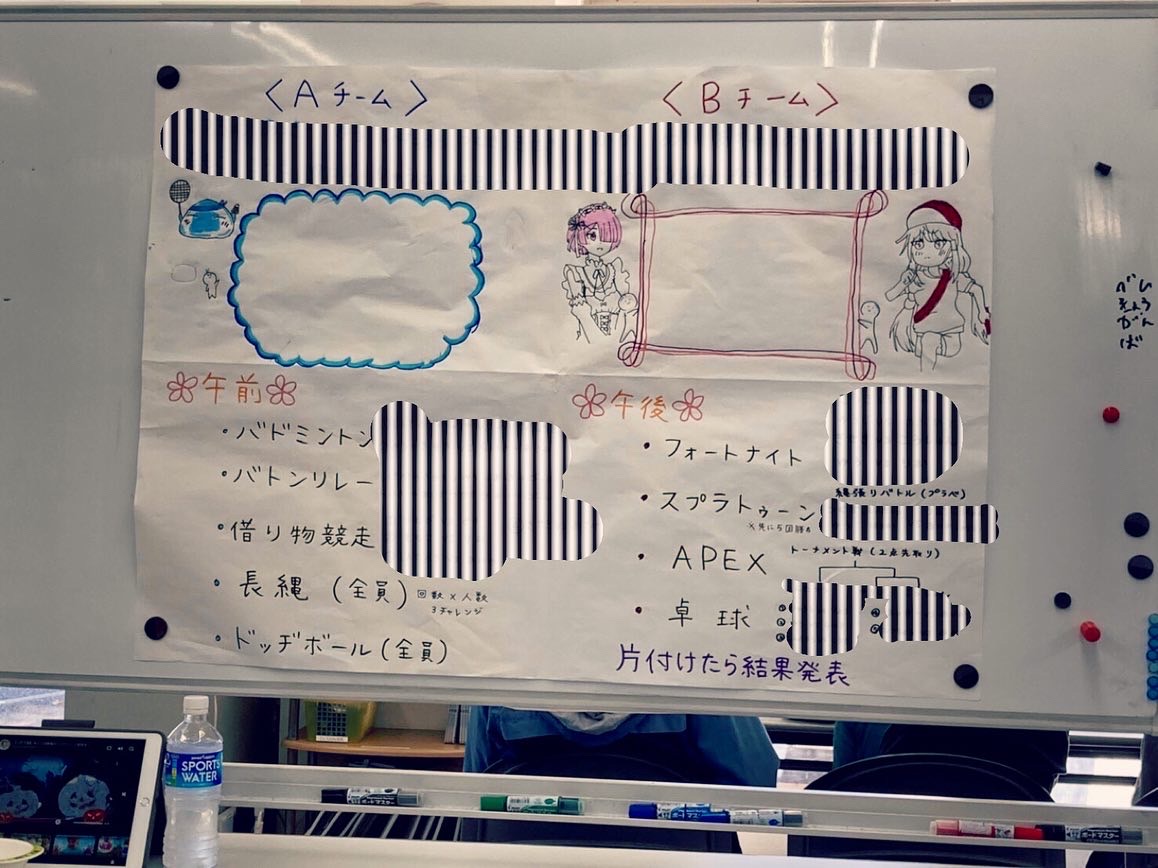 〈Aチーム〉
〈Bチーム〉
午前
・バドミントン
・バトンリレー
・借り物競走
・長縄 (全員)
回数×人数
3チャレンジ
・ドッヂボール (全員)
午後
・フォートナイト
・スプラトゥーン
縄張りバトル (プラベ)
※先に5回勝
・APEX
トーナメント戦 (2点先取り)
・卓球
①
②
③
片付けたら結果発表
SPORTS
WATER
ボードマスター
ボードマスター